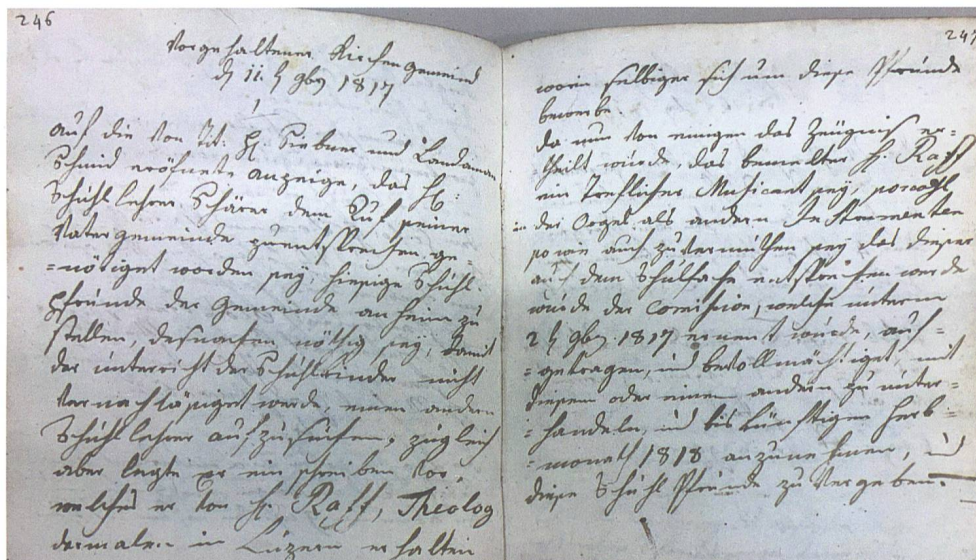 246
Vorgehaltener Kirchengemeind
d 11. 9br 1817
1
Auf die von Tit. H. Siebner und Landaman
Schmid eröfnete Anzeige, das H.
Schuhllehrer Schärer dem Ruf seiner
Vatergemeinde zuentsprechen ge=
=nötiget worden sey, hiesige Schuhl
Pfrunde der Gemeinde anheim zu
stellen, desnachen nöthig sey, damit
der unterricht der Schuhlkinder nicht
vernachläsiget werde, einen andern
Schuhllehrer aufzusuchen, zugleich
aber legte er ein schreiben vor,
welches er von H. Raff, Theolog
dermalen in Luzern erhalten
247
worin selbiger sich um diese Pfrunde
bewerbe.
da nun von einigen das Zeugniß er=
theilt wurde, das bemelter H. Raff
ein Treflicher Musicant sey, sowohl
in der Orgel als andern Instrumenten
so wie auch zuvermuthen sey das dieser
auch dem Schulfache entsprechen werde
wurde der Comission, welche unterm
9br 1817 ernent wurde, auf=
=getragen, und bevollmächtiget, mit
diesem oder einem andern zu unter=
=handeln, und bis künftigen Herb=
=monath 1818 anzunehmen, und
diese Schuhl Pfrunde zu vergeben.